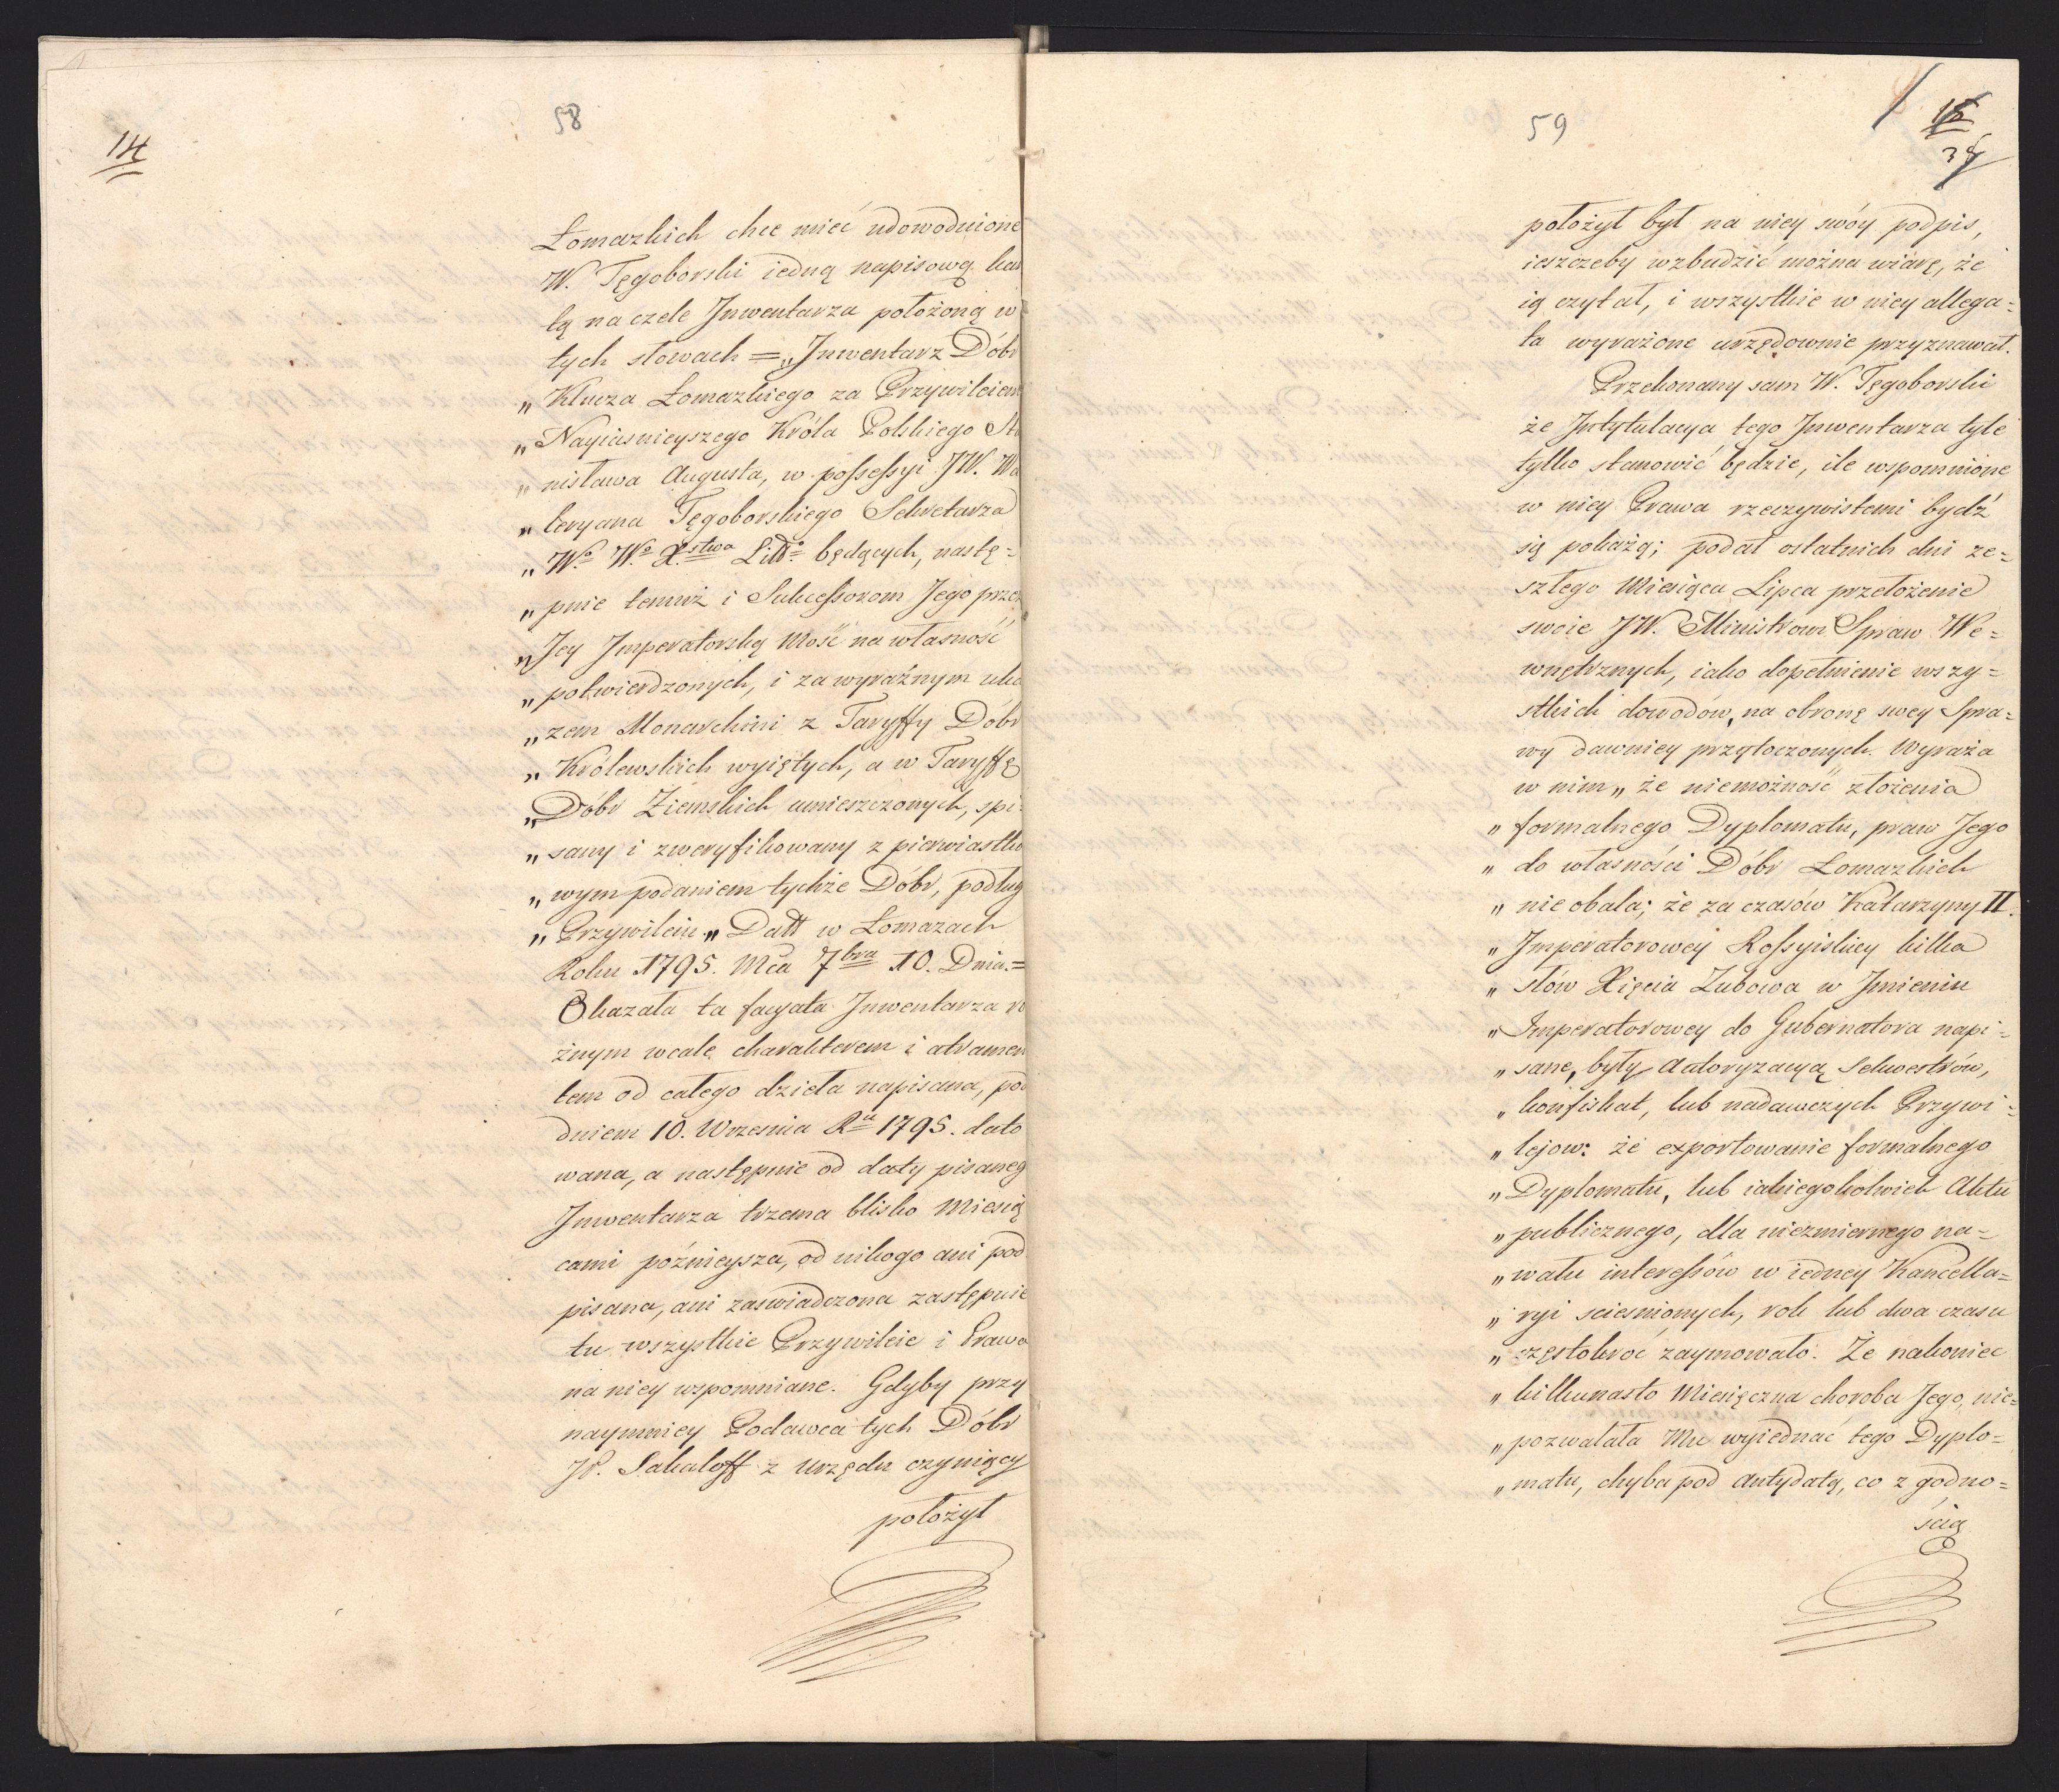 58
14
Łomazkich chce mieć udowodnione
W. Tęgoborski iedną napisową kar
tą na czele Jnwentarza położoną w
tych słowach = „Jnwentarz Dóbr
„ Klucza Łomazkiego za Przywileiem
„ Nayiasnieyszego Króla Polskiego Sta
„ nisława Augusta, w possessyi JW. Wa
„ leryana Tęgoborskiego Sekretarza
„ Wo. Wo. X.stwa Litto. będących, nastę=
„ pnie temuż i Sukcessorom Jego przez
„ Jey Jmperatorską Mość na własność
„ potwierdzonych, i za wyraźnym uka
„ zem Monarchini z Taryffy Dóbr
„ Królewskich wyiętych, a w Taryffę
„ Dóbr Ziemskich umieszczonych, spi
„ sany i zweryfikowany z pierwiastko
„ wym podaniem tychże Dóbr, podług
„ Przywileiu „ Datt w Łomazach
Roku 1795. Mca 7bra 10. Dnia.=
Okazała ta facyata Jnwentarza ró
żnym wcale charakterem i atramen
tem od całego dzieła napisana, pod
dniem 10. Września Ru 1795. dato
wana, a następnie od daty pisaneg
Jnwentarza trzema blisko Miesią
cami poźnieysza, od nikogo ani pod
pisana, ani zaswiadczona zastępuie
tu wszystkie Przywileie i Prawa
na niey wspomniane. Gdyby przy
naymniey Podawca tych Dóbr
JP. Sakaloff z Urzędu czyniący
położył
59
położył był na niey swóy podpis,
ieszczeby wzbudzić można wiarę, że
ią czytał, i wszystkie w niey allega=
ta wyrażone urzędownie przyznawał.
Przekonany sam W. Tęgoborski
że Jntytulacya tego Jnwentarza tyle
tylko stanowić będzie, ile wspomnione
w niey Prawa rzeczywistemi bydź
się pokażą; podał ostatnich dni ze=
szłego Miesiąca Lipca przełożenie
swoie JW. Ministrowi Spraw We=
wnętrznych, iako dopełnienie wszy=
stkich dowodów, na obronę swey Spra=
wy dawniey przytoczonych. Wyraża
w nim „ że niemożność złożenia
„ formalnego Dyplomatu, praw Jego
„ do własności Dóbr Łomazkich
„ nie obala; że za czasów Katarzyny II.
„ Jmperatorowey Rossyiskiey kilka
„ słów Xięcia Zubowa w Jmieniu
„ Jmperatorowey do Gubernatora napi=
„ sane, były Autoryzacyą sekwestrów,
„ konfiskat, lub nadawczych Przywi=
„ lejow: że exportowanie formalnego
„ Dyplomatu, lub iakiegokolwiek Aktu
„ publicznego, dla niezmiernego na=
„ wału interessów w iedney Kancella=
„ ryi sciesnionych, rok lub dwa czasu
„ częstokroć zaymowało. Że nakoniec
„ kilkunasto Miesięczna choroba Jego, nie=
„ pozwalała Mu wyiednać tego Dyplo=
„ matu, chyba pod Antydatą, co z godno=
ścią